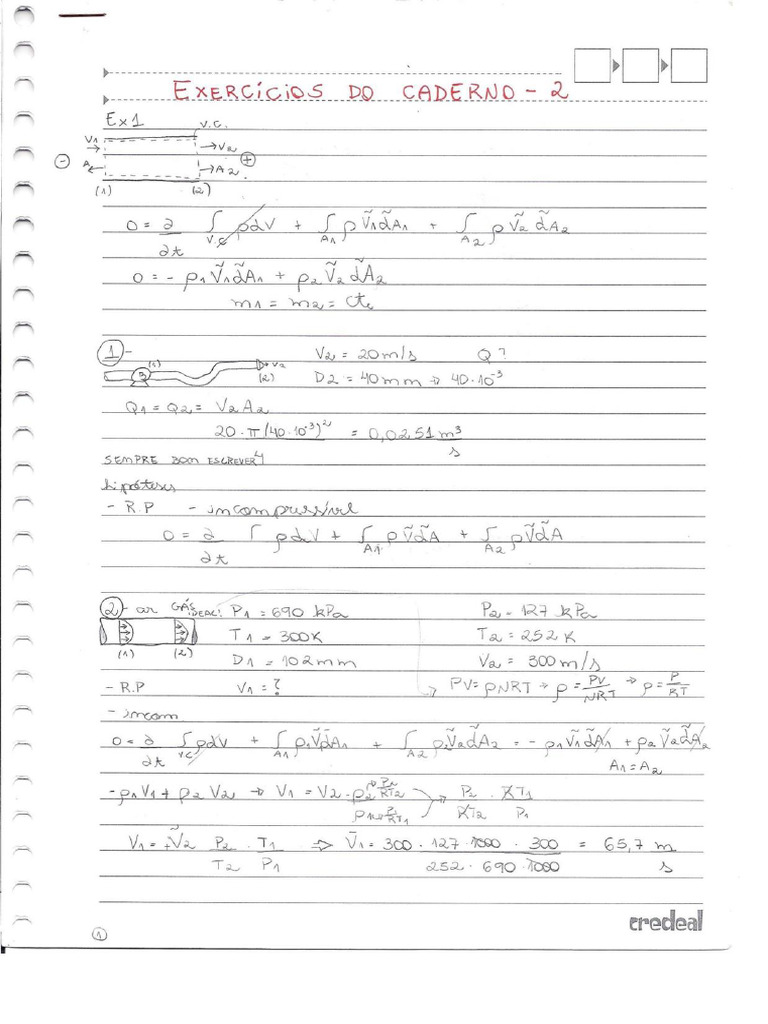 EXERCÍCIOS DO CADERNO - 2
Ex1
V.C.
V1 → → V2
⊖ A ← → A2 ⊕
(1) (2)
0 = ∂/∂t ∫V.C ρdV + ∫A1 ρ Ṽ1 d̃A1 + ∫A2 ρ Ṽ2 d̃A2
0 = - ρ1 Ṽ1 d̃A1 + ρ2 Ṽ2 d̃A2
m1 = m2 = Cte
1 - V2 = 20 m/s Q?
(1) B → V2 (2) D2 = 40mm → 40·10⁻³
Q1 = Q2 = V2 A2
20·π(40·10⁻³)² = 0,0251 m³/s
SEMPRE BOM ESCREVER
hipóteses
- R.P - incompressível
0 = ∂/∂t ∫ ρdV + ∫A1 ρṼd̃A + ∫A2 ρṼd̃A
2 - ar GÁS IDEAL! P1 = 690 kPa P2 - 127 kPa
T1 = 300K T2 = 252 K
(1) (2) D1 = 102mm V2 = 300 m/s
- R.P V1 = ? → PV = ρNRT → ρ = PV/NRT → ρ = P/RT
- incom
0 = ∂/∂t ∫VC ρdV + ∫A1 ρ1Ṽd̃A1 + ∫A2 ρ2Ṽ2d̃A2 = - ρ1Ṽ1d̃A1 + ρ2Ṽ2d̃A2
A1 = A2
-ρ1V1 + ρ2V2 → V1 = V2 · ρ2 → P2/RT2 / ρ1 → P1/RT1 → P2/RT2 · RT1/P1
V1 = +Ṽ2 P2/T2 · T1/P1 ⇒ Ṽ1 = 300 · 127 · 1000 · 300 / 252 · 690 · 1000 = 65,7 m/s
credeal
1